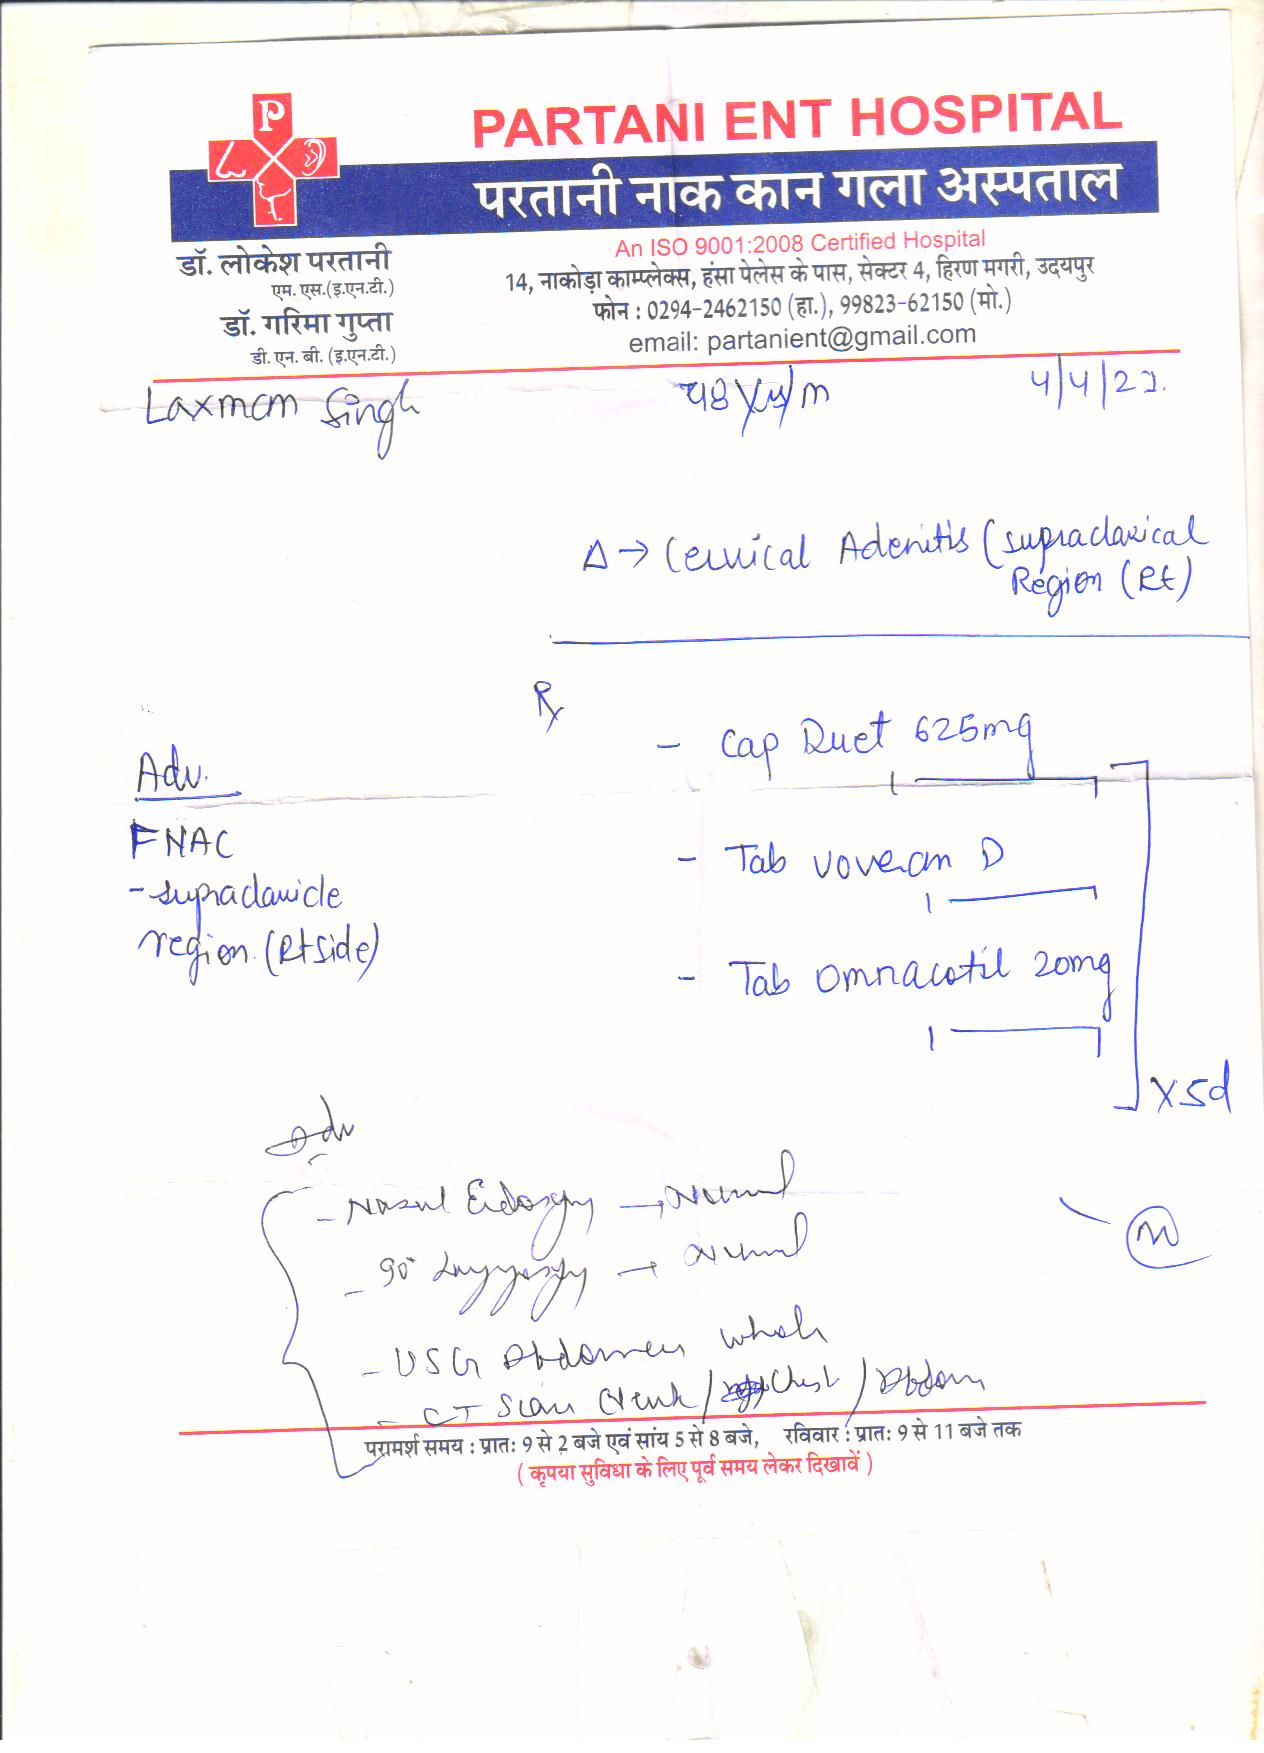 P
PARTANI ENT HOSPITAL
परतानी नाक कान गला अस्पताल
An ISO 9001:2008 Certified Hospital
14, नाकोड़ा काम्प्लेक्स, हंसा पेलेस के पास, सेक्टर 4, हिरण मगरी, उदयपुर
फोन : 0294-2462150 (हा.), 99823-62150 (मो.)
email: partanient@gmail.com
डॉ. लोकेश परतानी
एम. एस.(इ.एन.टी.)
डॉ. गरिमा गुप्ता
डी. एन. बी. (इ.एन.टी.)
Laxman Singh
4/4/22.
Δ → Cervical Adenitis (supraclavical
Region (Rt)
Rx
- Cap Duet 625mg
- Tab voveran D
- Tab omnacotil 20mg
x 5d
Adv.
FNAC
- supraclavicle
region. (Rt side)
Adv
- Nasal Endoscopy → Normal
- 90° Laryngoscopy → Normal
- USG Abdomen whole
- CT Scan / Chest / Abdomen
परामर्श समय : प्रातः 9 से 2 बजे एवं सांय 5 से 8 बजे, रविवार : प्रातः 9 से 11 बजे तक
( कृपया सुविधा के लिए पूर्व समय लेकर दिखावें )